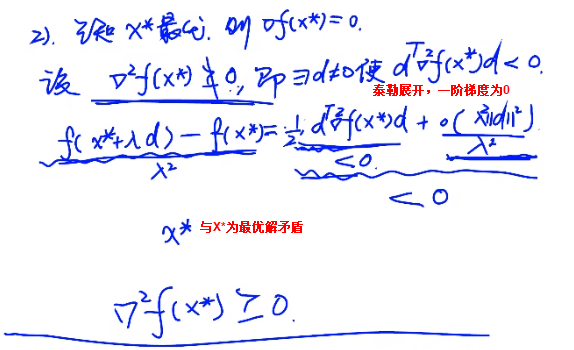 2). 已知 x*最优. 则 ∇f(x*)=0.
设 ∇²f(x*) ≱ 0, 即 ∃d≠0使 dᵀ∇²f(x*)d < 0.
泰勒展开，一阶梯度为0
(f(x*+λd) − f(x*))/λ² = ½ dᵀ∇²f(x*)d + o(λ²||d||²)/λ²
<0.
< 0
x* 与X*为最优解矛盾
∇²f(x*) ≥ 0.